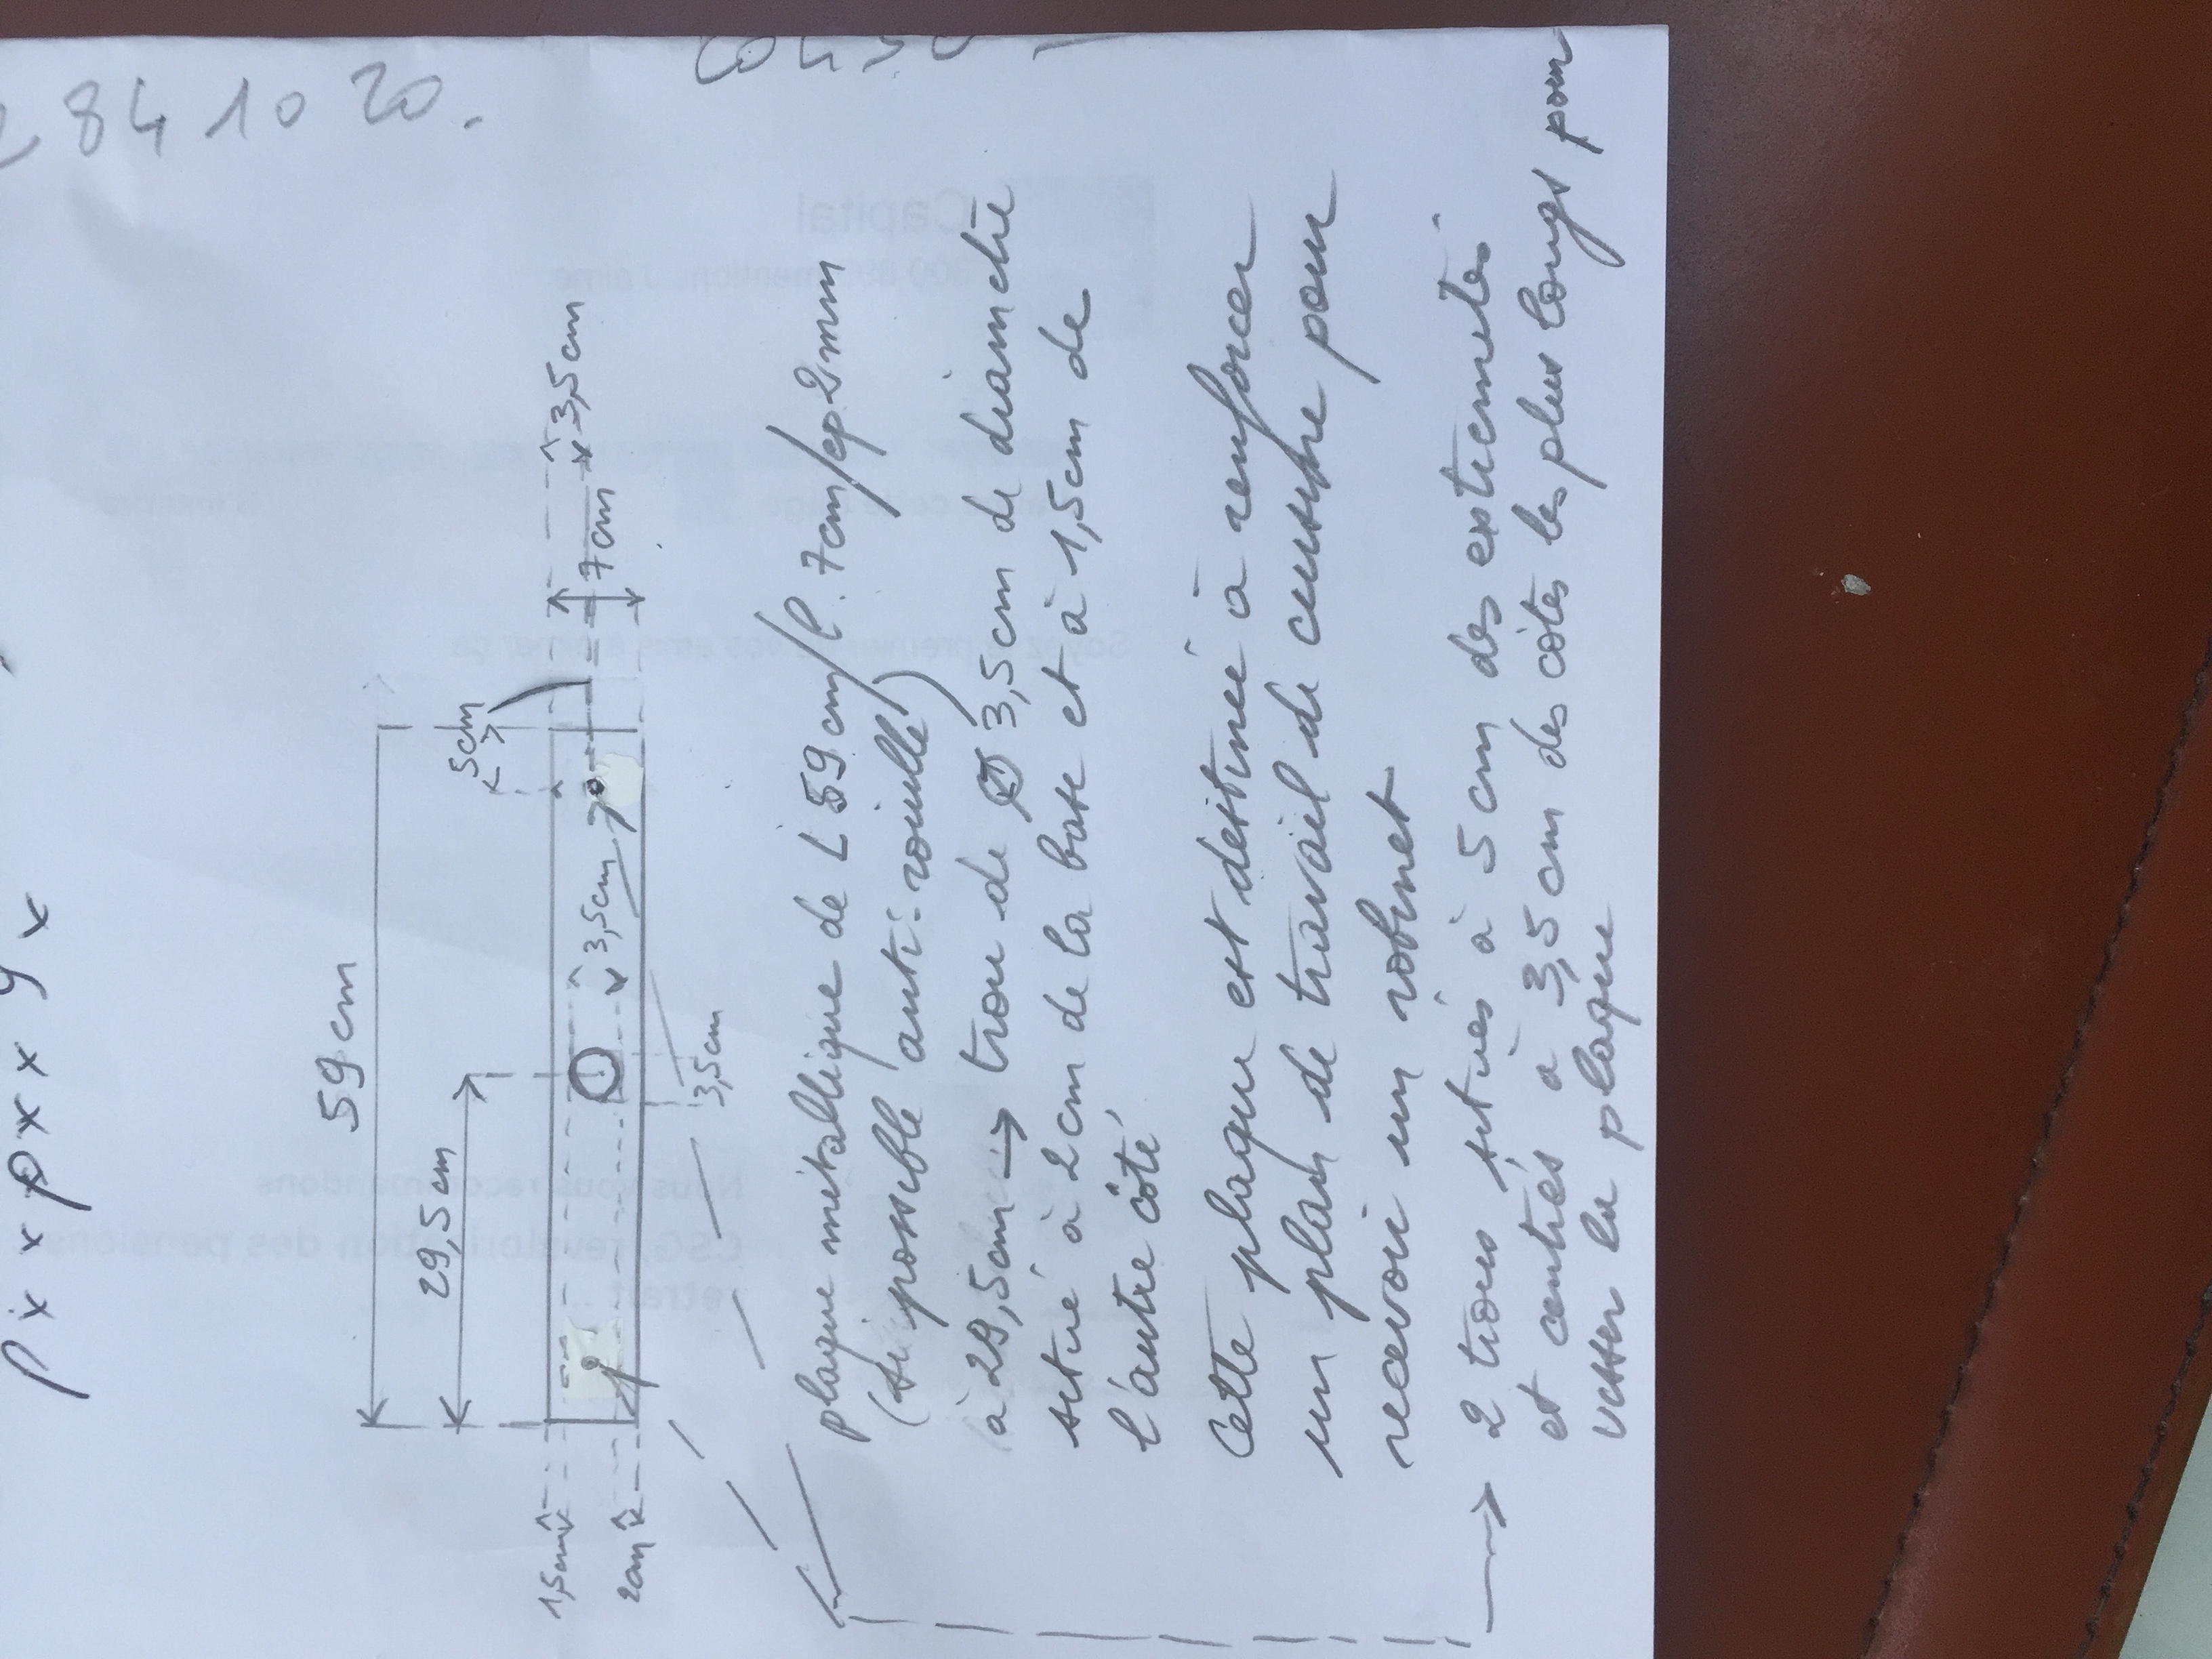 84 10 20.
p x x p x x y x
59 cm
29,5 cm
5cm
1,5cm
3,5cm
7cm
3,5cm
2cm
3,5cm
plaque métallique de L 59 cm/l. 7cm/ep 2mm
(si possible anti-rouille)
à 29,5cm → trou de Ø 3,5cm de diamètre
situé à 2cm de la base et à 1,5cm de
l'autre côté
Cette plaque est destinée à renforcer
un plan de travail de cuisine pour
recevoir un robinet
→ 2 trous situés à 5 cm des extremités
et centrés à 3,5 cm des côtés les plus longs pour
visser la plaque
Capital
Nous vous recommandons
CSG, revalorisation des pensions
retrait ...